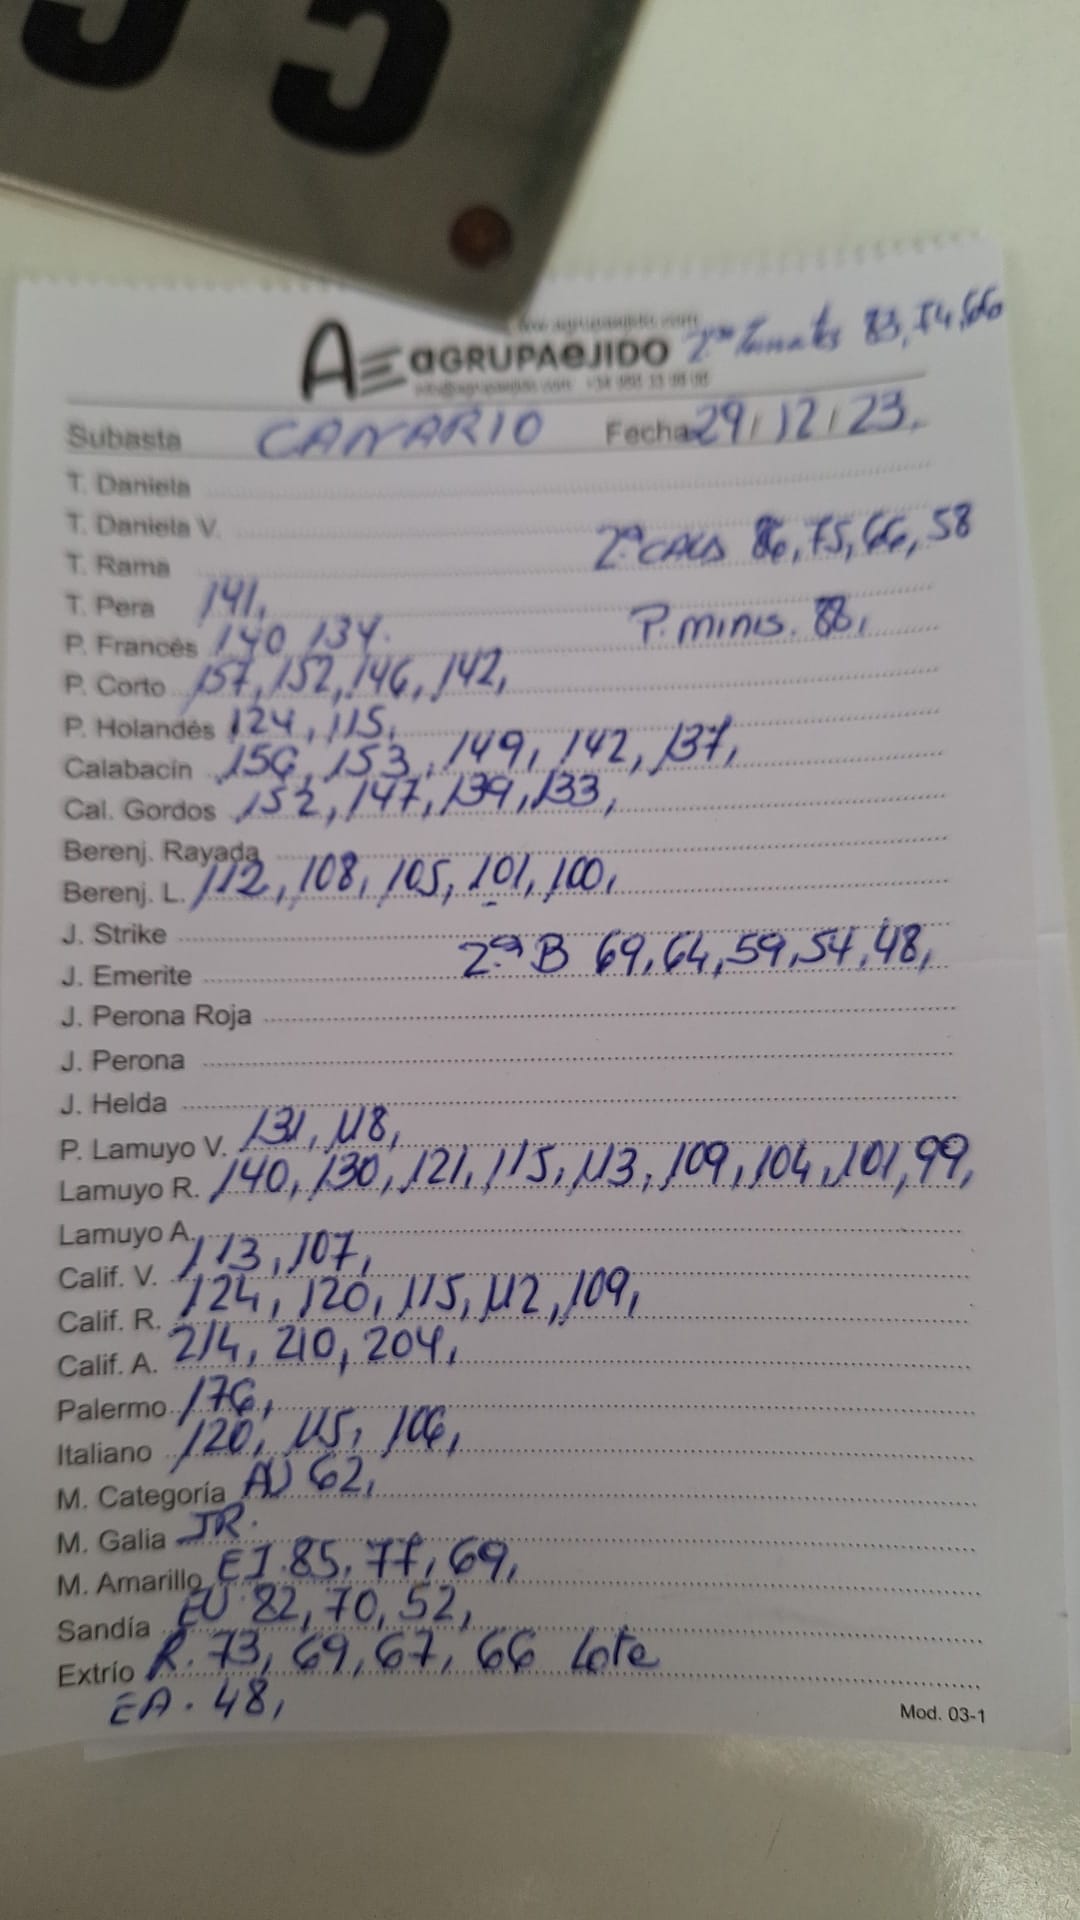 35
www.agrupaejido.com
AE aGRUPAeJIDO 83, 54, 66
Subasta CANARIO Fecha 29/12/23.
T. Daniela
T. Daniela V.
T. Rama 2ª CALS 86, 75, 66, 58
T. Pera 141,
P. Francés 140 134. P. minis. 88,
P. Corto 157, 152, 146, 142,
P. Holandés 124, 115,
Calabacín 156, 153, 149, 142, 137,
Cal. Gordos 152, 147, 139, 133,
Berenj. Rayada
Berenj. L. 112, 108, 105, 101, 100,
J. Strike
J. Emerite 2ª B 69, 64, 59, 54, 48,
J. Perona Roja
J. Perona
J. Helda
P. Lamuyo V. 131, 118,
Lamuyo R. 140, 130, 121, 115, 113, 109, 104, 101, 99,
Lamuyo A.
Calif. V. 113, 107,
Calif. R. 124, 120, 115, 112, 109,
Calif. A. 214, 210, 204,
Palermo 176,
Italiano 120, 115, 106,
M. Categoría AU 62,
M. Galia JR.
M. Amarillo EI. 85, 77, 69,
Sandía EU. 82, 70, 52,
Extrío R. 73, 69, 67, 66 Lote
EA. 48,
Mod. 03-1